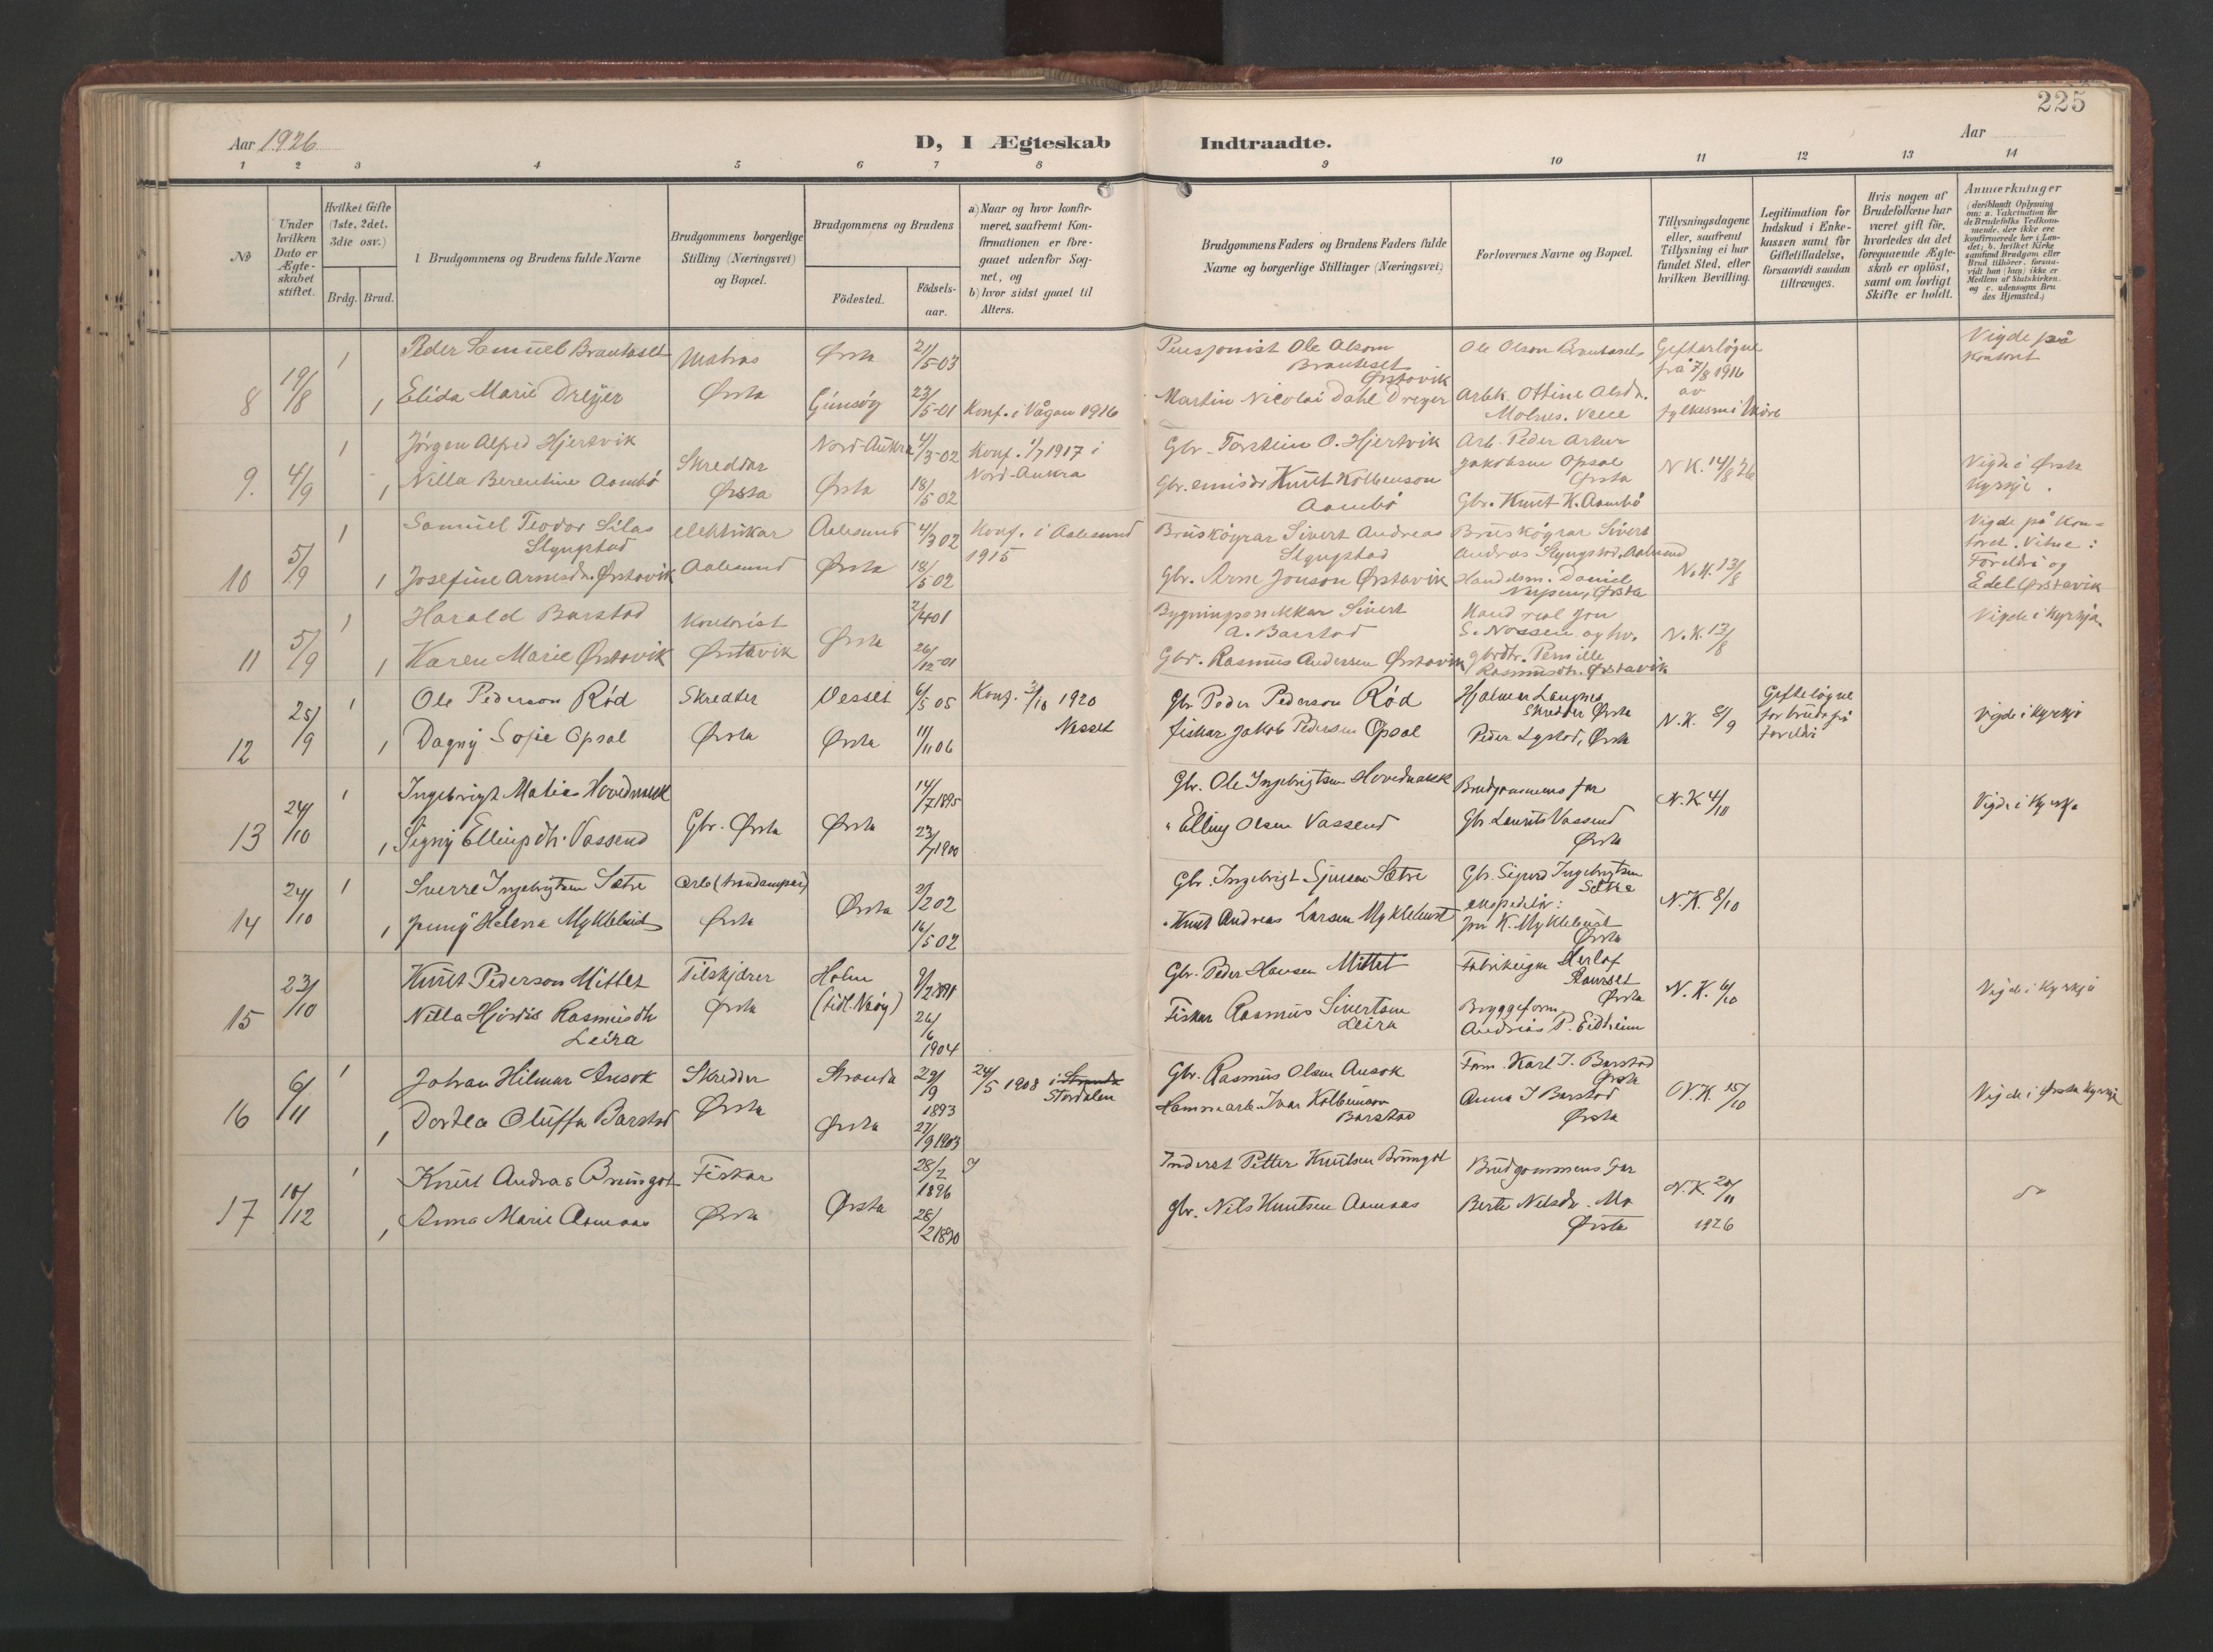 225
Aar 1926
D, I Ægteskab Indtraadte.
Aar
1 2 3 4 5 6 7 8 9 10 11 12 13 14
No
Under hvilken Dato er Ægteskabet stiftet.
Hvilket Gifte (1ste, 2det, 3die osv.)
Brdg. Brud.
Brudgommens og Brudens fulde Navne
Brudgommens borgerlige Stilling (Næringsvei) og Bopæl.
Brudgommens og Brudens
Födested.
Födsels-aar.
a) Naar og hvor konfirmeret, saafremt Konfirmationen er foregaaet udenfor Sognet, og
b) hvor sidst gaaet til Alters.
Brudgommens Faders og Brudens Faders fulde Navne og borgerlige Stillinger (Næringsvei)
Forlovernes Navne og Bopæl.
Tillysningsdagene eller, saafremt Tillysning ei har fundet Sted, efter hvilken Bevilling.
Legitimation for Indskud i Enkekassen samt for Giftetilladelse, forsaavidt saadan tiltrænges.
Hvis nogen af Brudefolkene har været gift för, hvorledes da det foregaaende Ægteskab er oplöst, samt om lovligt Skifte er holdt.
Anmærkninger (deriblandt Oplysning om: a. Vakcination for de Brudefolks Vedkommende, der ikke ere konfirmerede her i Landet; b. hvilket Kirkesamfund Brudgom eller Brud tilhörer, forsaavidt han (hun) ikke er Medlem af Statskirken. og c. udensogns Brudes Hjemsted.)
8 19/8 1 Peder Samuel Brautaset Matros Ørsta 21/5-03 Pensjonist Ole Olsson Brauteset Ørstavik Ole Olson Brautaset Gifterløyve frå 7/8 1916 av fylkesm i Møre Vigde på kontoret
1 Elida Marie Dreyer Ørsta Gimsøy 23/5-01 Konf. i Vågan 1916 Martin Nicolai Dahl Dreyer Arbk. Ottine Molnes.
9. 4/9 1 Jörgen Alfred Hjertvik Skreddar Nord-Aukra 4/3-02 Konf. 1/7 1917 i Nord-Aukra Gbr. Torstein O. Hjertvik Arb. Peder Artur Jakobsen Opsal Ørsta N.K. 14/8 26 Vigde i Ørsta Kyrkje.
1 Nilla Berentine Aambö Ørsta Ørsta 18/5 02 Gbr. Knut Kolbeinson Aambö Gbr. Knut K. Aambö
10 5/9 1 Samuel Teodor Silas Slyngstad elektrikar Aalesund 4/3 02 Konf. i Aalesund 1915 Brusköyrar Sivert Andreas Slyngstad Brusköyrar Sivert Andreas Slyngstad, Aalesund N.K. 13/8 Vigde på kontoret. Vitne: Foreldri og Edel Ørstavik
1 Josefine Arnesdr. Ørstavik Aalesund Ørsta 18/5 02 Gbr. Arne Jonson Ørstavik Handelsm. Daniel Ørsta
11 5/9 1 Harald Barstad Kontorist Ørsta 2/4 01 Sivert A. Barstad Jon S. Nossen og hv. N.K. 13/8 Vigde i Kyrkja
1 Karen Marie Ørstavik Ørstavik 26/12-01 Gbr. Rasmus Andersen Ørstavik gbrdtr. Pernille Rasmusdtr. Ørstavik
12 25/9 1 Ole Pederson Röd Skredder Vesset 6/5 05 Konf. 3/10 1920 Nesset Gbr Peder Pederson Röd Hjalmar Langnes Skredder Ørsta N.K. 8/9 Gifteløyve for bruda frå foreldri Vigde i Kyrkja
1 Dagny Sofie Opsal Ørsta Ørsta 11/11 06 fiskar Jakob Pedersen Opsal Peder Lystad, Ørsta
13 24/10 1 Ingebrigt Matias Hovdenakk Gbr. Ørsta Ørsta 14/7 1895 Gbr. Ole Ingebrigtsen Hovdenakk Brudgommens far N.K. 4/10 Vigde i Kyrkja
1 Signy Ellingsdtr. Vassend 23/7 1900 " Elling Olsen Vassend Gbr Laurits Vassend Ørsta
14 24/10 1 Sverre Ingebrigtsen Sætre Arb Ørsta 2/2 02 Gbr. Ingebrigt Sjursen Sætre Gbr. Sigurd Ingebrigtsen Sætre N.K. 8/10
1 Jenny Helena Myklebust Ørsta 16/5 02 " Knut Andreas Larsen Myklebust ekspeditör: Jon K. Myklebust Ørsta
15 23/10 Knut Pederson Mittet Tilskjærer Holm 9/2 1891 Gbr. Peder Hansen Mittet Fabrikeigar Herlof Staurset Ørsta N.K. 6/10 Vigde i Kyrkja
Nilla Hjördis Rasmusdtr Leira Ørsta 26/6 1904 Fiskar Rasmus Sivertsen Leira Byggeform. Andreas P. Eidheim
16 6/11 1 Johan Hilmar Ansok Skredder Stranda 29/9 1893 24/5 1908 i Stranda Stordalen Gbr. Rasmus Olsen Ansok Form. Karl I. Barstad Ørsta N.K. 15/10 Vigde i Ørsta Kyrkje
1 Dortea Oluffa Barstad Ørsta Ørsta 27/9 1903 Ivar Kolbeinson Barstad Anna I Barstad Ørsta
17 10/12 1 Knut Andreas Brungot Fiskar Ørsta 28/2 1896 Inderst Petter Knutsen Brungot Brudgommens Far N.K. 20/11 1926 do
1 Anna Marie Aamaas Ørsta 28/2 1890 gbr. Nils Knutsen Aamaas Berte Nilsdr. Mo Ørsta